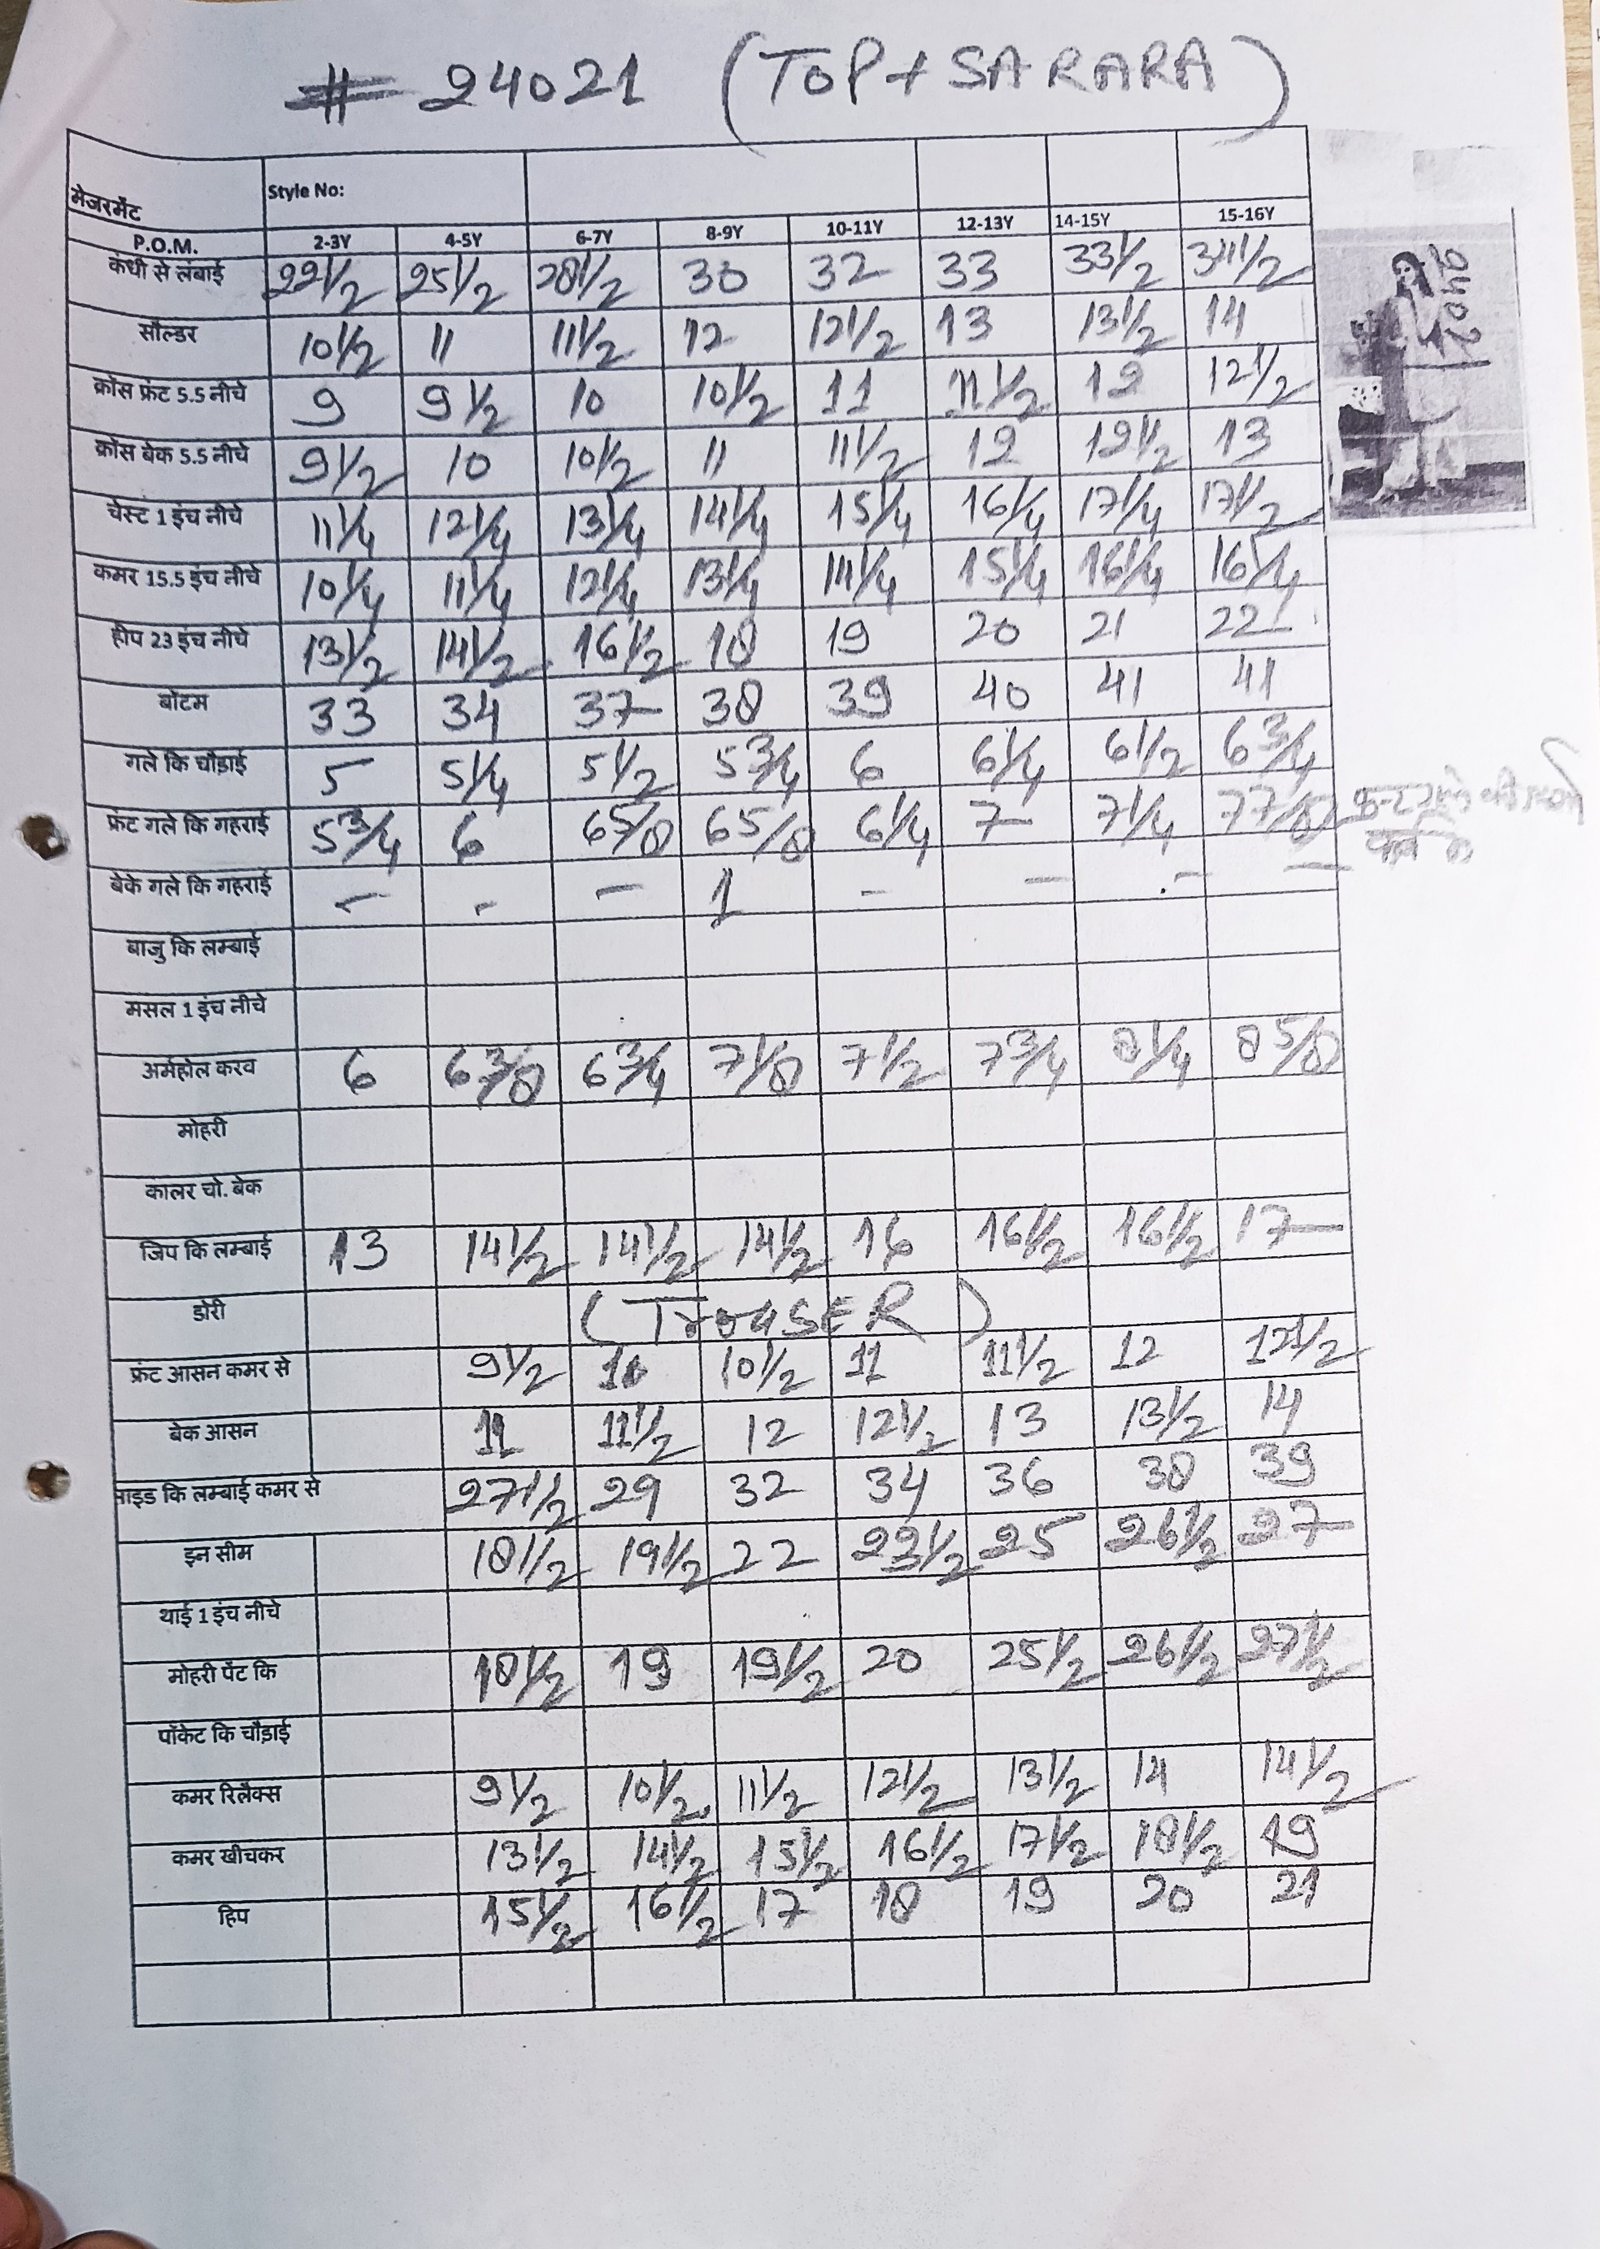 # 24021 (TOP + SARARA)
मेजरमेंट Style No:
P.O.M. 2-3Y 4-5Y 6-7Y 8-9Y 10-11Y 12-13Y 14-15Y 15-16Y
कंधी से लंबाई 22 1/2 25 1/2 28 1/2 30 32 33 33 1/2 34 1/2
सौल्डर 10 1/2 11 11 1/2 12 12 1/2 13 13 1/2 14
क्रॉस फ्रंट 5.5 नीचे 9 9 1/2 10 10 1/2 11 11 1/2 12 12 1/2
क्रॉस बेक 5.5 नीचे 9 1/2 10 10 1/2 11 11 1/2 12 12 1/2 13
चेस्ट 1 इंच नीचे 11 1/4 12 1/4 13 1/4 14 1/4 15 1/4 16 1/4 17 1/4 17 1/2
कमर 15.5 इंच नीचे 10 1/4 11 1/4 12 1/4 13 1/4 14 1/4 15 1/4 16 1/4 16 1/4
हीप 23 इंच नीचे 13 1/2 14 1/2 16 1/2 18 19 20 21 22
बॉटम 33 34 37 38 39 40 41 41
गले कि चौड़ाई 5 5 1/4 5 1/2 5 3/4 6 6 1/4 6 1/2 6 3/4
फ्रंट गले कि गहराई 5 3/4 6 6 5/8 6 5/8 6 1/4 7 7 1/4 7 7/8
बेके गले कि गहराई - - - 1 - - - -
बाजु कि लम्बाई
मसल 1 इंच नीचे
अर्महोल करव 6 6 3/8 6 3/4 7 1/8 7 1/2 7 3/4 8 1/4 8 5/8
मोहरी
कालर चो. बेक
जिप कि लम्बाई 13 14 1/2 14 1/2 14 1/2 16 16 1/2 16 1/2 17
डोरी (TrouSER)
फ्रंट आसन कमर से 9 1/2 10 10 1/2 11 11 1/2 12 12 1/2
बेक आसन 11 11 1/2 12 12 1/2 13 13 1/2 14
साइड कि लम्बाई कमर से 27 1/2 29 32 34 36 38 39
इन सीम 18 1/2 19 1/2 22 23 1/2 25 26 1/2 27
थाई 1 इंच नीचे
मोहरी पेंट कि 18 1/2 19 19 1/2 20 25 1/2 26 1/2 27 1/2
पॉकेट कि चौड़ाई
कमर रिलैक्स 9 1/2 10 1/2 11 1/2 12 1/2 13 1/2 14 14 1/2
कमर खीचकर 13 1/2 14 1/2 15 1/2 16 1/2 17 1/2 18 1/2 19
हिप 15 1/2 16 1/2 17 18 19 20 21
24021